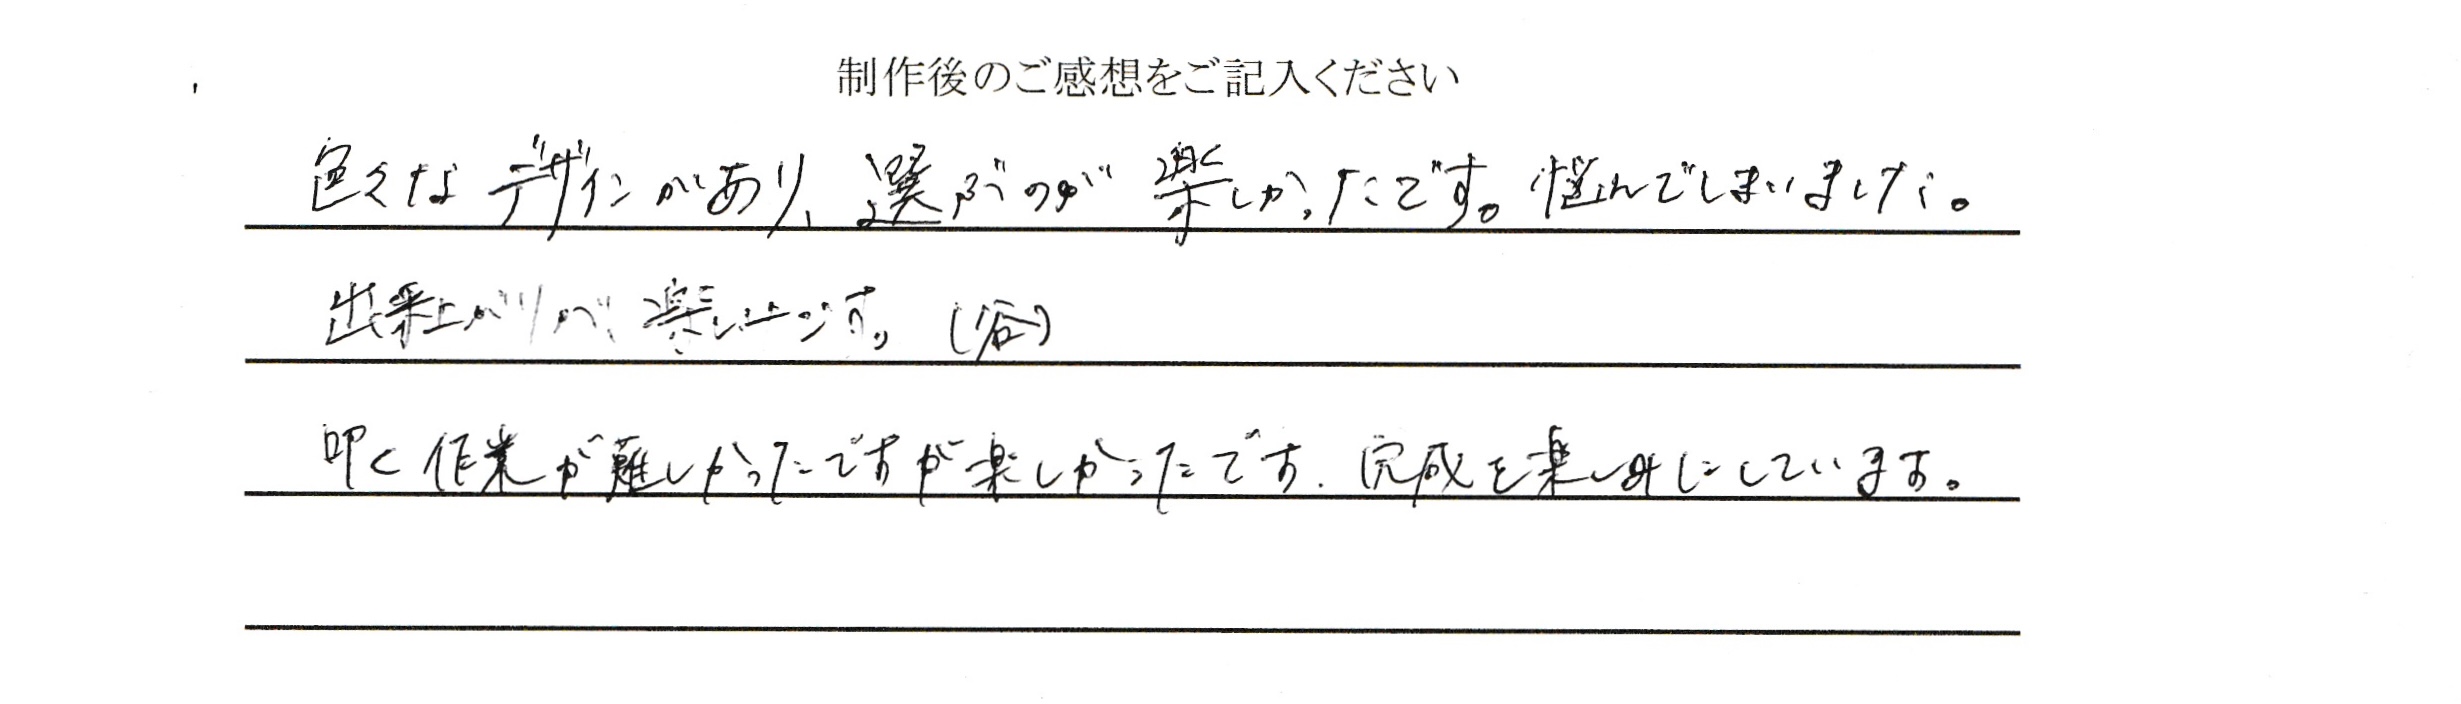 制作後のご感想をご記入ください
色々なデザインがあり、選ぶのが楽しかったです。悩んでしまいました。
出来上がりが楽しみです。(谷)
叩く作業が難しかったですが楽しかったです。完成を楽しみにしています。